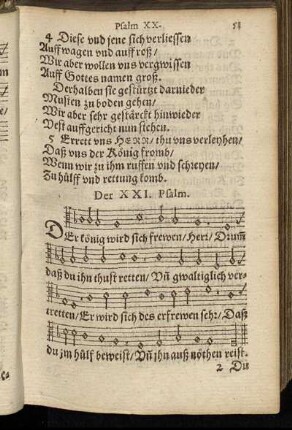 Psalm XX. 58
4 Diese vnd jene sich verliessen
Auff wagen vnd auff roß/
Wir aber wollen vns vergwissen
Auff Gottes namen groß.
Derhalben sie gestürtzt darnieder
Musten zu boden gehen/
Wir aber sehr gestärckt hinwieder
Vest auffgericht nun stehen.
5 Errett vns HERR/ thu vns verleyhen/
Daß vns der König fromb/
Wenn wir zu ihm ruffen vnd schreyen/
Zu hülff vnd rettung komb.
Der XXI. Psalm.
DEr könig wird sich frewen/ Herr/ Drumb
daß du ihn thust retten/ Vñ gwaltiglich ver-
tretten/ Er wird sich des erfrewen sehr/ Daß
du jm hülf beweist/ Vñ ihn auß nöthen reist.
2 Du